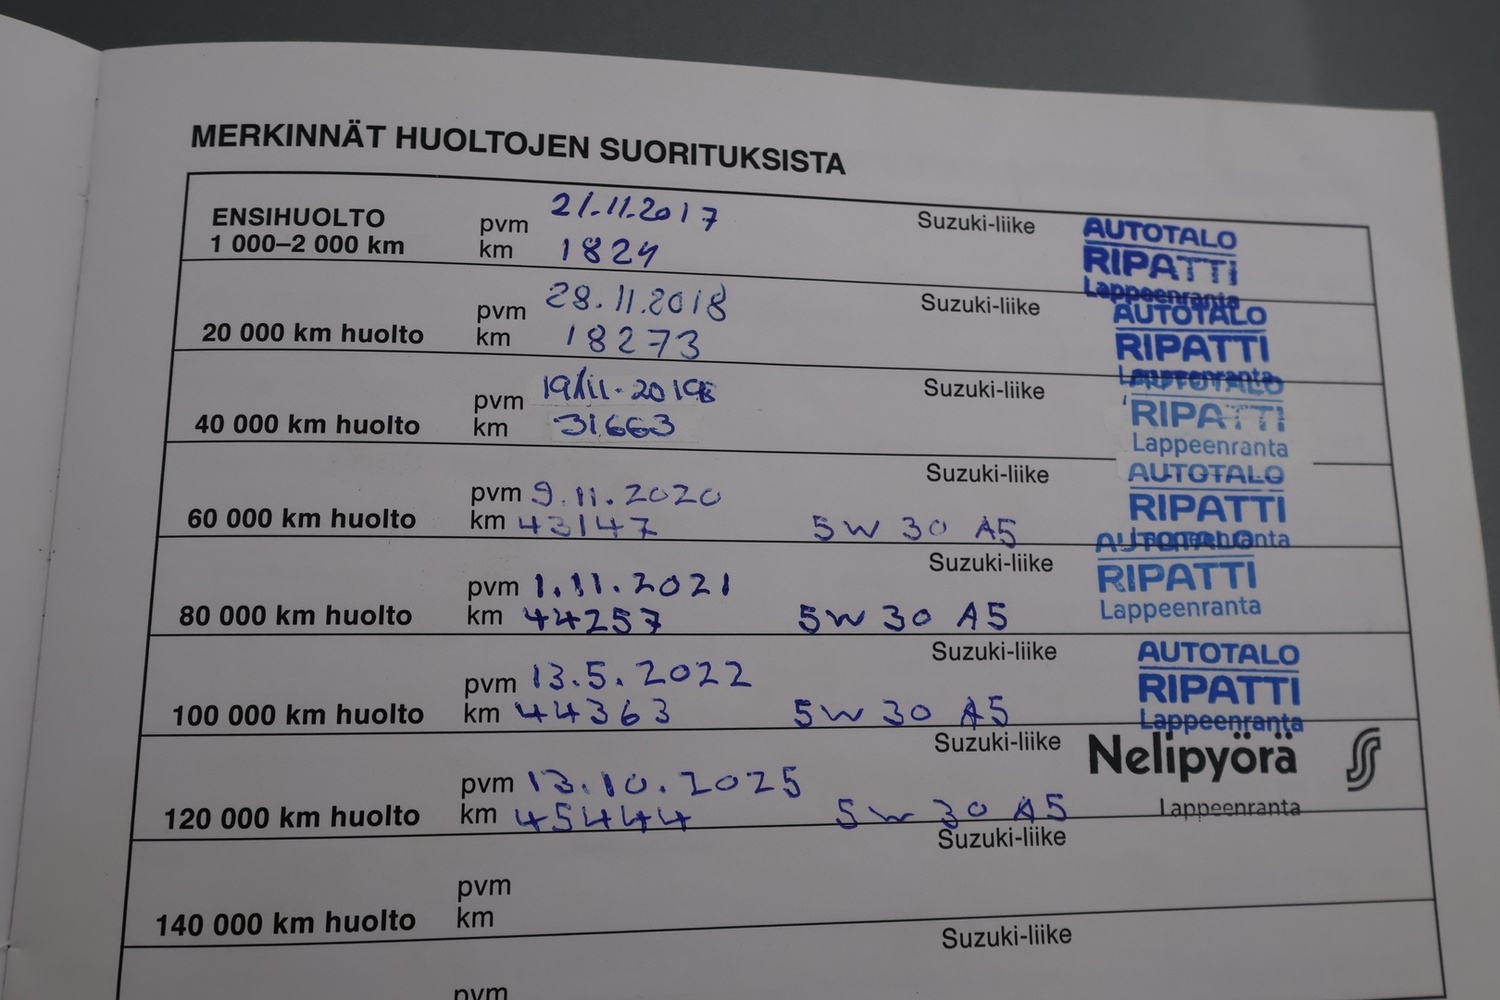 MERKINNÄT HUOLTOJEN SUORITUKSISTA
ENSIHUOLTO
1 000–2 000 km
pvm 21.11.2017
km 1824
Suzuki-liike
AUTOTALO
RIPATTI
Lappeenranta
20 000 km huolto
pvm 28.11.2018
km 18273
Suzuki-liike
AUTOTALO
RIPATTI
Lappeenranta
40 000 km huolto
pvm
km 31663
Suzuki-liike
AUTOTALO
RIPATTI
Lappeenranta
60 000 km huolto
pvm 9.11.2020
km 43147 5W 30 A5
Suzuki-liike
AUTOTALO
RIPATTI
Lappeenranta
80 000 km huolto
pvm 1.11.2021
km 44257 5W 30 A5
Suzuki-liike
AUTOTALO
RIPATTI
Lappeenranta
100 000 km huolto
pvm 13.5.2022
km 44363 5W 30 A5
Suzuki-liike
AUTOTALO
RIPATTI
Lappeenranta
120 000 km huolto
pvm 13.10.2025
km 45444 5W 30 A5
Suzuki-liike
Nelipyörä
Lappeenranta
140 000 km huolto
pvm
km
Suzuki-liike
pvm
Suzuki-liike